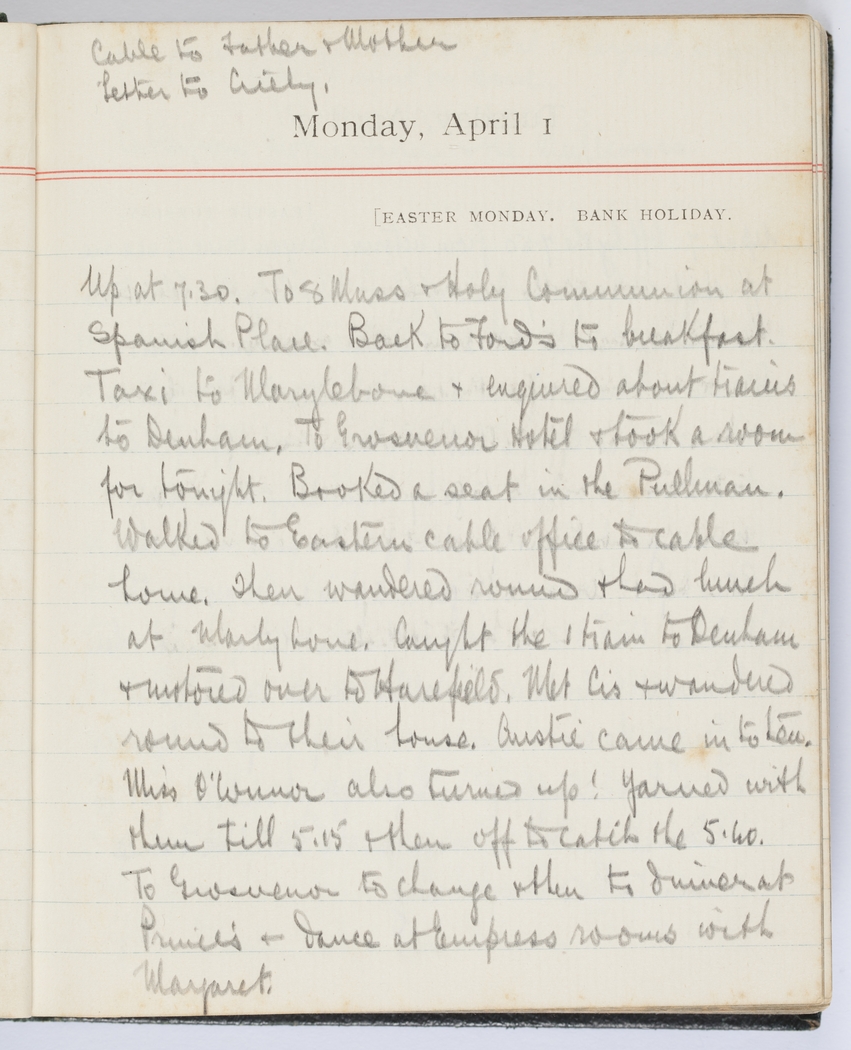 Cable to Father & Mother
Letter to Cicely.
Monday, April 1
[EASTER MONDAY. BANK HOLIDAY.
Up at 7.30. To 8 Mass & Holy Communion at
Spanish Place. Back to Ford's to breakfast.
Taxi to Marylebone & enquired about trains
to Denham. To Grosvenor Hotel & took a room
for tonight. Booked a seat in the Pullman.
Walked to Eastern cable office to cable
home. Then wandered round & had lunch
at Marlybone. Caught the 1 train to Denham
& motored over to Harefield. Met Cis & wandered
round to their house. Austie came in to tea.
Miss O'Connor also turned up! Yarned with
them till 5.15 & then off to catch the 5.40.
To Grosvenor to change & then to dinner at
Prince's & dance at Empress rooms with
Margaret.